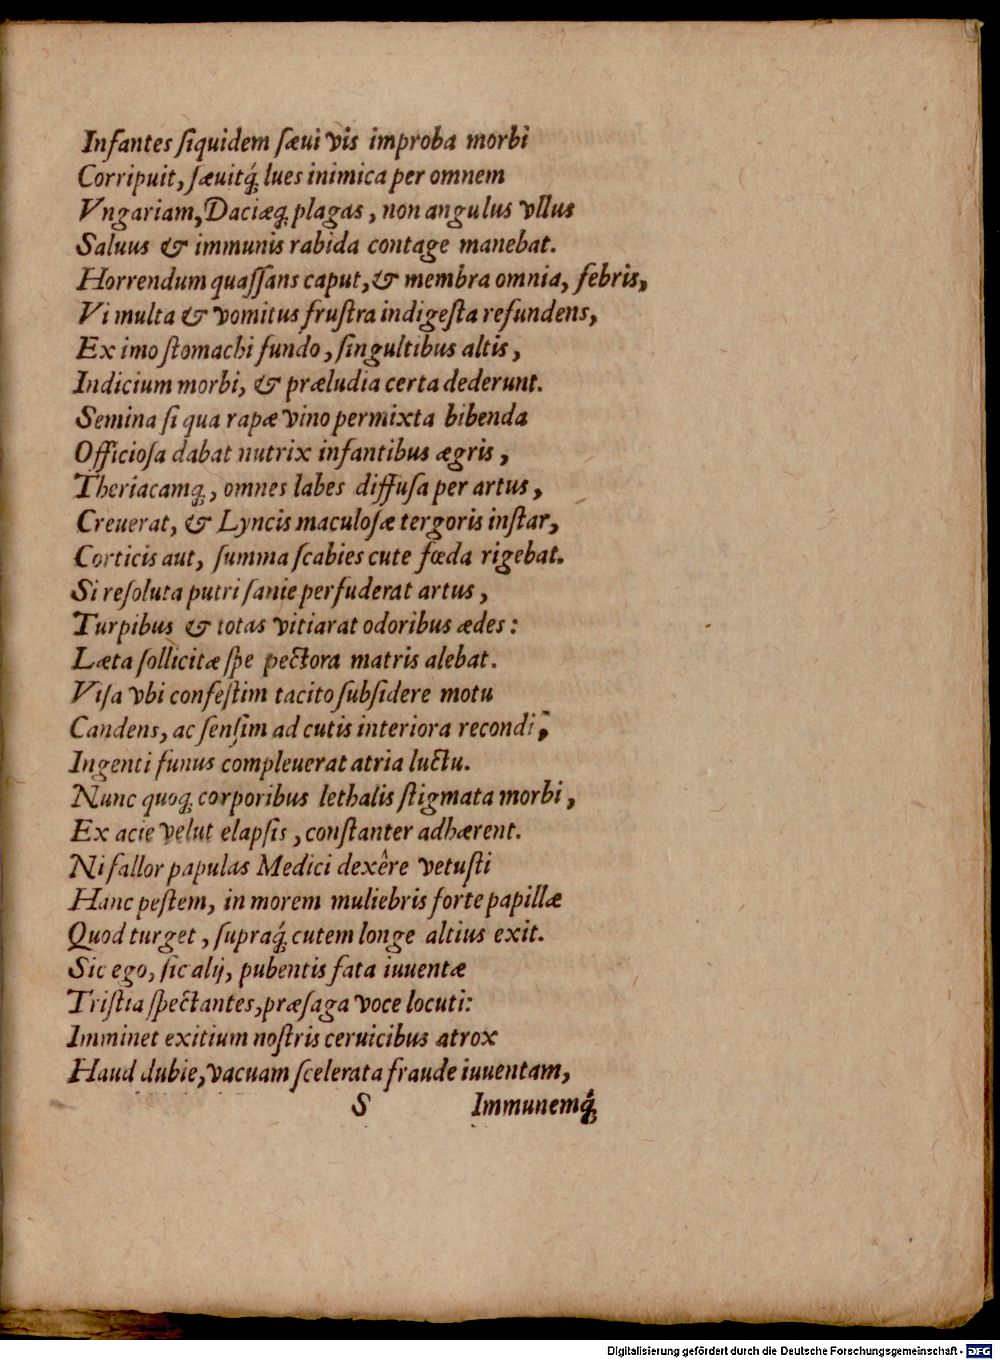 Infantes ſiquidem ſæui vis improba morbi
Corripuit, ſæuitq́; lues inimica per omnem
Vngariam, Daciæq; plagas, non angulus vllus
Saluus & immunis rabida contage manebat.
Horrendum quaſſans caput, & membra omnia, febris,
Vi multa & vomitus fruſtra indigeſta refundens,
Ex imo ſtomachi fundo, ſingultibus altis,
Indicium morbi, & præludia certa dederunt.
Semina ſi qua rapæ vino permixta bibenda
Officioſa dabat nutrix infantibus ægris,
Theriacamq;, omnes labes diffuſa per artus,
Creuerat, & Lyncis maculoſæ tergoris inſtar,
Corticis aut, ſumma ſcabies cute fœda rigebat.
Si reſoluta putri ſanie perfuderat artus,
Turpibus & totas vitiarat odoribus ædes:
Læta ſollicitæ ſpe pectora matris alebat.
Viſa vbi confeſtim tacito ſubſidere motu
Candens, ac ſenſim ad cutis interiora recondi,
Ingenti funus compleuerat atria luctu.
Nunc quoq; corporibus lethalis ſtigmata morbi,
Ex acie velut elapſis, conſtanter adhærent.
Ni fallor papulas Medici dexêre vetuſti
Hanc peſtem, in morem muliebris forte papillæ
Quod turget, ſupraq́; cutem longe altius exit.
Sic ego, ſic alij, pubentis fata iuuentæ
Triſtia ſpectantes, præſaga voce locuti:
Imminet exitium noſtris ceruicibus atrox
Haud dubie, vacuam ſcelerata fraude iuuentam,
S Immunemq́;
Digitalisierung gefördert durch die Deutsche Forschungsgemeinschaft - DFG